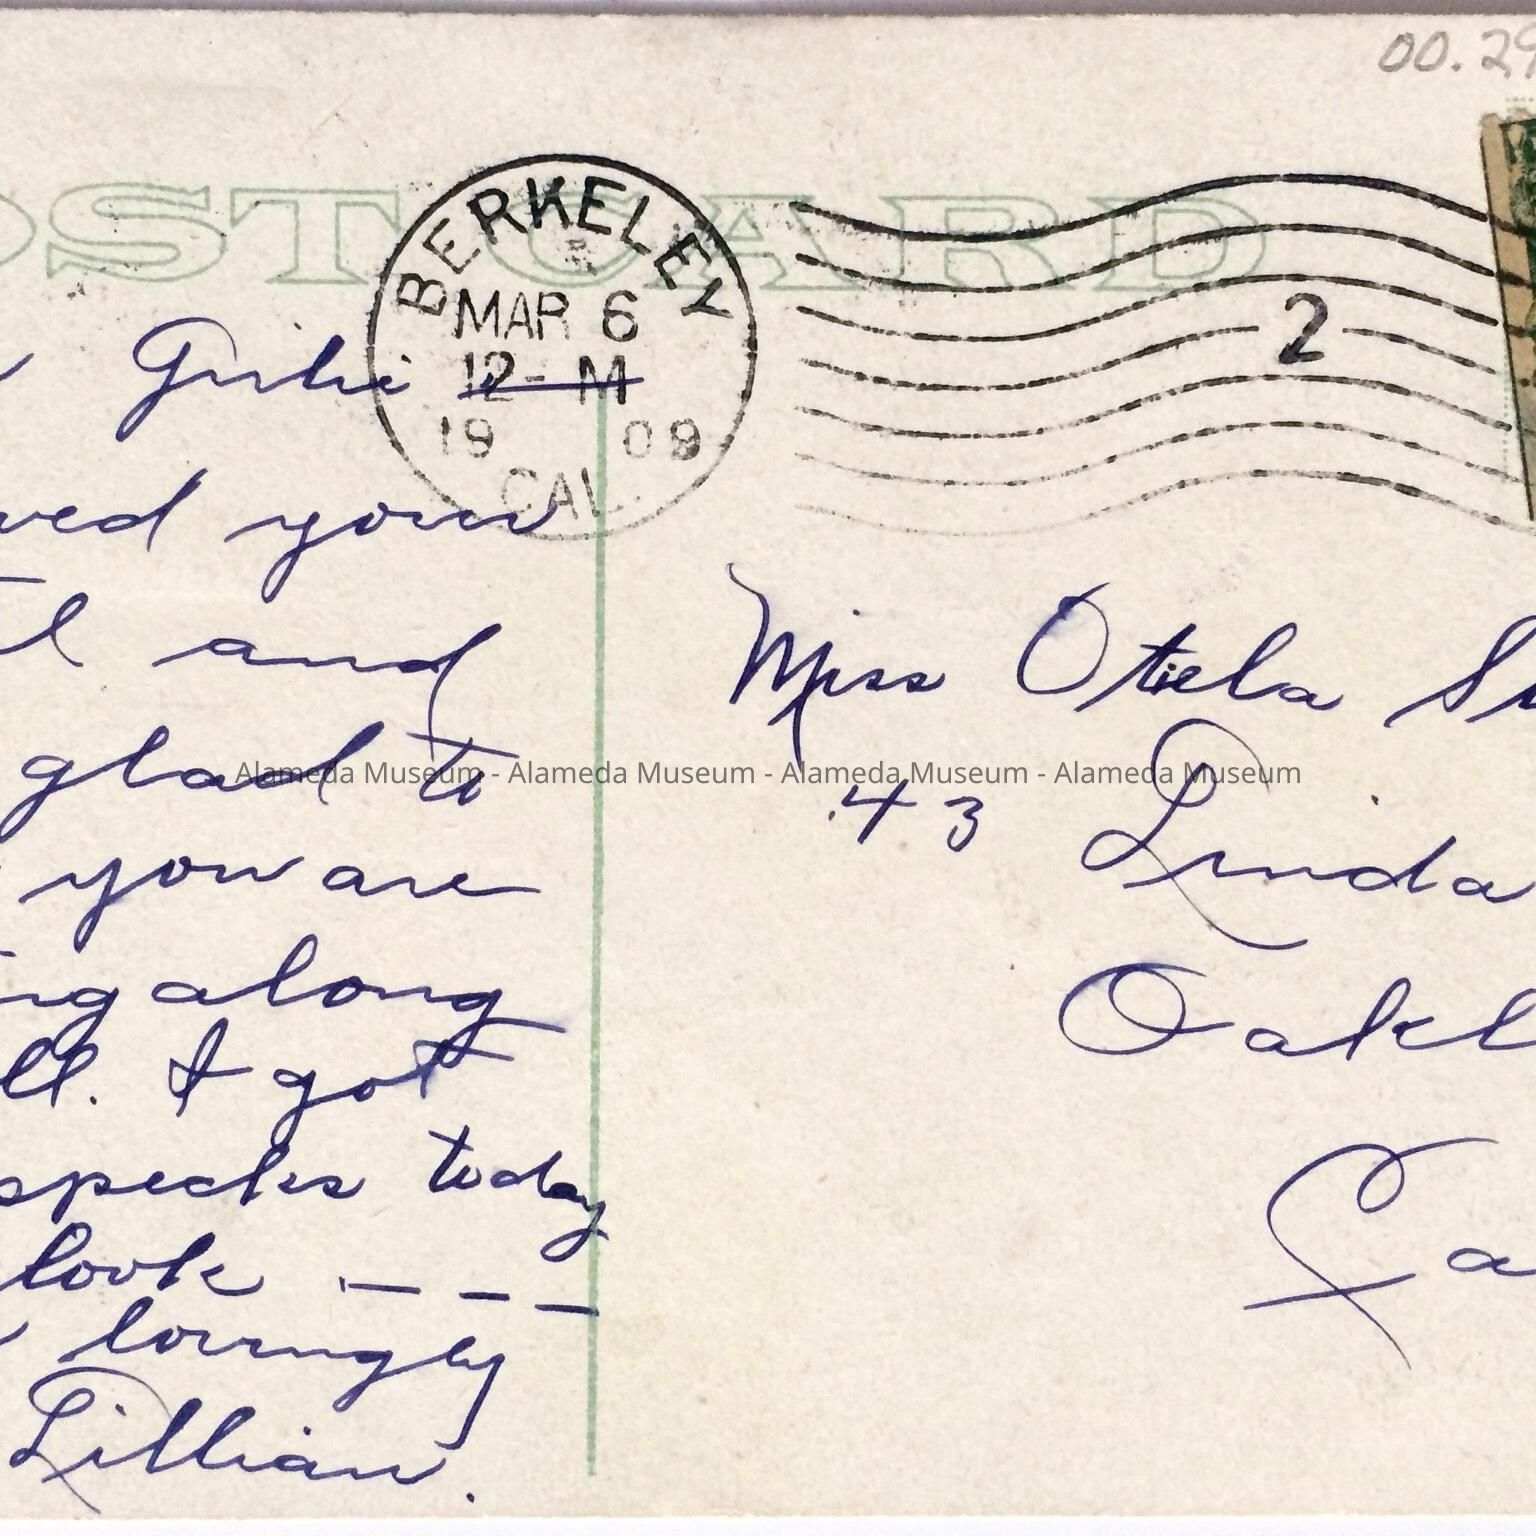 00.29
POST CARD
BERKELEY
MAR 6
12- M
19 09
CAL.
2
your
and
glad to
you are
along
ll. I got
specks today
look - - -
lovingly
Lillian.
Miss Otiela
43 Linda
Oakl
Ca
Alameda Museum - Alameda Museum - Alameda Museum - Alameda Museum